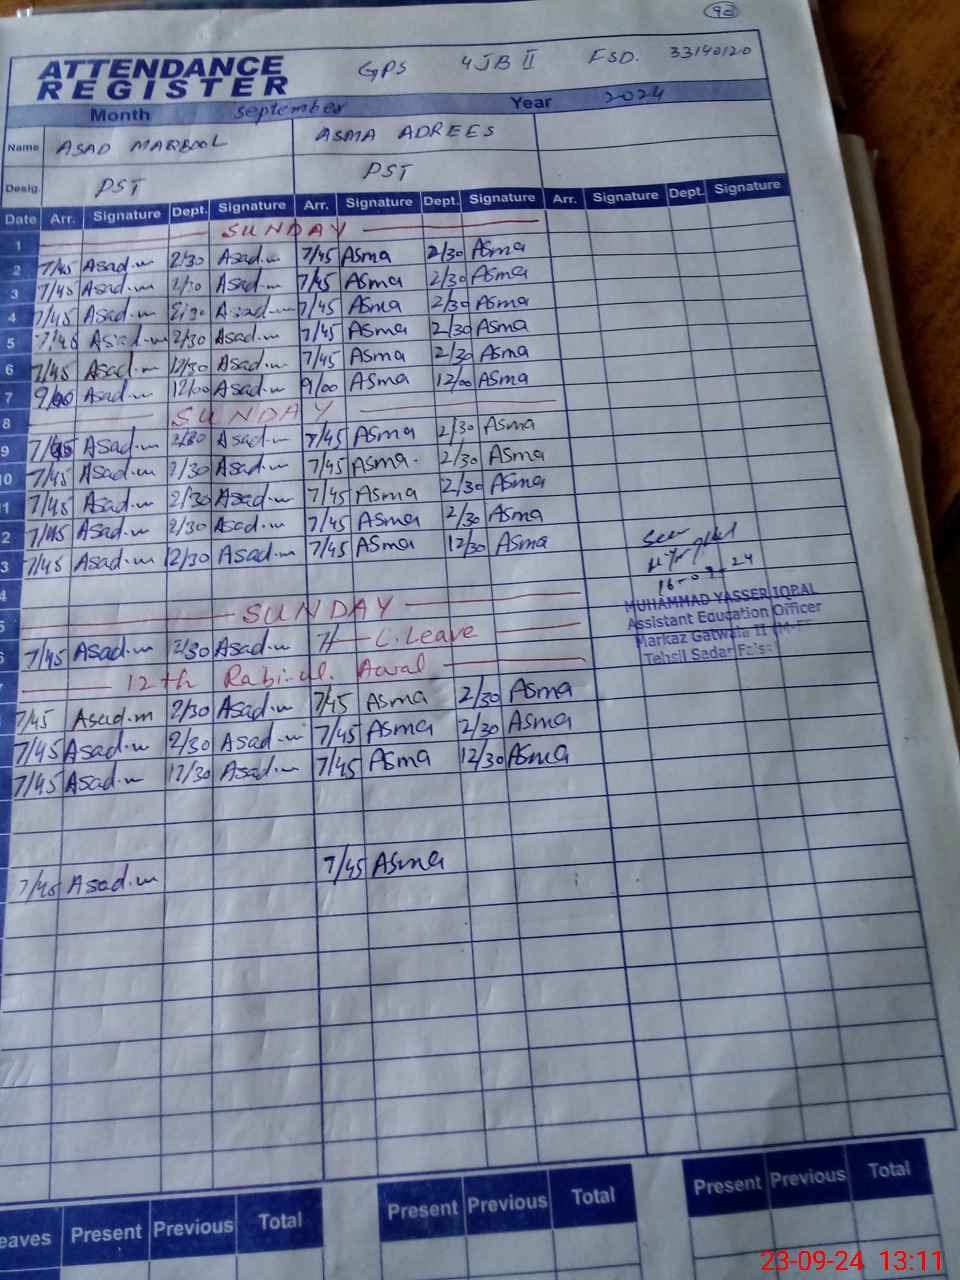 90
ATTENDANCE GPS 4JB II FSD. 33140120
REGISTER
Month september Year 2024
Name ASAD MAQBOOL ASMA ADREES
Desig. PST PST
Date Arr. Signature Dept. Signature Arr. Signature Dept. Signature Arr. Signature Dept. Signature
1 SUNDAY
2 7/45 Asad.m 2/30 Asad.m 7/45 Asma 2/30 Asma
3 7/45 Asad.m 2/30 Asad.m 7/45 Asma 2/30 Asma
4 7/45 Asad.m Asad.m 7/45 Asma 2/30 Asma
5 7/45 Asad.m 2/30 Asad.m 7/45 Asma 2/30 Asma
6 7/45 Asad.m 12/30 Asad.m 7/45 Asma 2/30 Asma
7 9/00 Asad.m 12/00 Asad.m 9/00 Asma 12/00 Asma
8 SUNDAY
9 7/45 Asad.m 2/30 Asad.m 7/45 Asma 2/30 Asma
10 7/45 Asad.m 2/30 Asad.m 7/45 Asma. 2/30 Asma
1 7/45 Asad.m 2/30 Asad.m 7/45 Asma 2/30 Asma
2 7/45 Asad.m 2/30 Asad.m 7/45 Asma 2/30 Asma
3 7/45 Asad.m 12/30 Asad.m 7/45 Asma 12/30 Asma
16-09-24
4
MUHAMMAD YASSER IQBAL
5 SUNDAY
Assistant Education Officer
6 7/45 Asad.m 2/30 Asad.m C.Leave
Markaz Gatwala II
12th Rabi-ul. Awal
Tehsil Sadar
7/45 Asad.m 2/30 Asad.m 7/45 Asma 2/30 Asma
7/45 Asad.m 2/30 Asad.m 7/45 Asma 2/30 Asma
7/45 Asad.m 12/30 Asad.m 7/45 Asma 12/30 Asma
7/45 Asad.m 7/45 Asma
eaves Present Previous Total Present Previous Total Present Previous Total
23-09-24 13:11